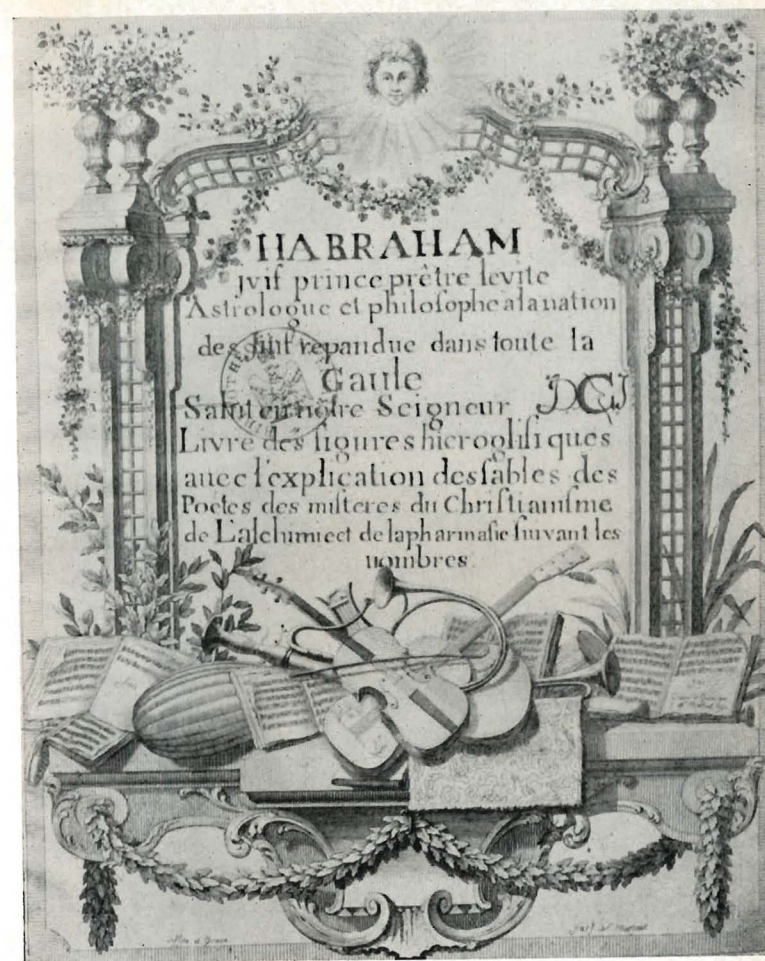 HABRAHAM
jvif prince prêtre levite
Astrologue et philosophe a la nation
des juif repandue dans toute la
Gaule
Salut en nôtre Seigneur DCJ
Livre des figures hieroglifiques
avec l'explication des fables des
Poetes des misteres du Christianisme
de L'alchimie et de la pharmasie suivant les
nombres.